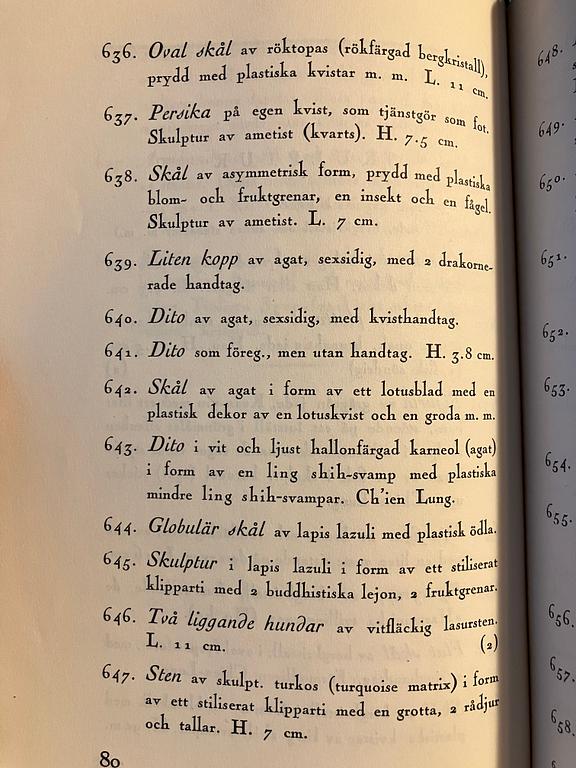 636. Oval skål av röktopas (rökfärgad bergkristall),
prydd med plastiska kvistar m. m. L. 11 cm.
637. Persika på egen kvist, som tjänstgör som fot.
Skulptur av ametist (kvarts). H. 7.5 cm.
638. Skål av asymmetrisk form, prydd med plastiska
blom- och fruktgrenar, en insekt och en fågel.
Skulptur av ametist. L. 7 cm.
639. Liten kopp av agat, sexsidig, med 2 drakorne-
rade handtag.
640. Dito av agat, sexsidig, med kvisthandtag.
641. Dito som föreg., men utan handtag. H. 3.8 cm.
642. Skål av agat i form av ett lotusblad med en
plastisk dekor av en lotuskvist och en groda m. m.
643. Dito i vit och ljust hallonfärgad karneol (agat)
i form av en ling shih-svamp med plastiska
mindre ling shih-svampar. Ch'ien Lung.
644. Globulär skål av lapis lazuli med plastisk ödla.
645. Skulptur i lapis lazuli i form av ett stiliserat
klipparti med 2 buddhistiska lejon, 2 fruktgrenar.
646. Två liggande hundar av vitfläckig lasursten.
L. 11 cm. (2)
647. Sten av skulpt. turkos (turquoise matrix) i form
av ett stiliserat klipparti med en grotta, 2 rådjur
och tallar. H. 7 cm.
80
648.
649.
650.
651.
652.
653.
654.
655.
656.
657.
658.